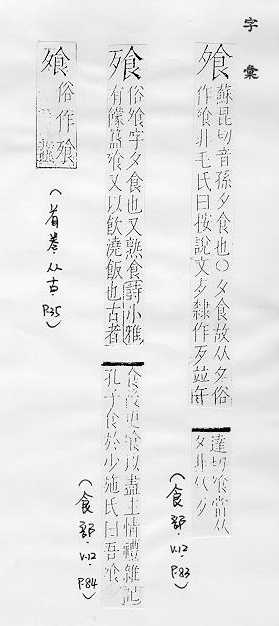 字彙
飧
蘇昆切音孫夕食也○夕食故从夕俗
作飱非毛氏曰按說文歺隸作歹竝牙
達切飧當从
夕非从歹
(食部.V.12.P.83)
飱
俗飧字夕食也又熟食詩小雅
有饛簋飧又以飲澆飯也古者
食後更食以盡主情禮雜記
孔子食於少施氏曰吾飧
(食部.V.12.P.84)
飧
俗作飱
(首卷.从古.P35)